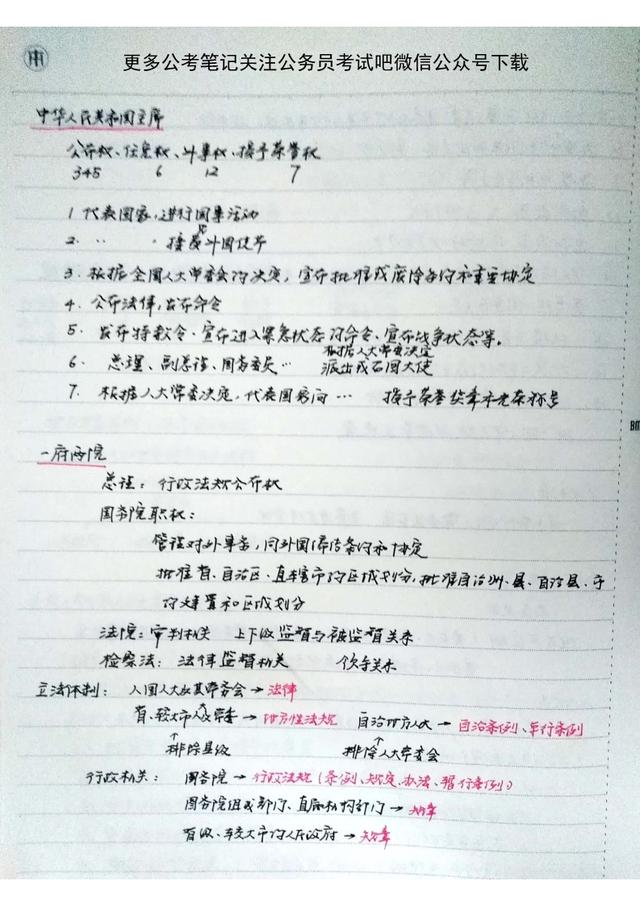 更多公考笔记关注公务员考试吧微信公众号下载
中华人民共和国主席
公布权、任免权、外事权、授予荣誉权
345 6 12 7
1 代表国家,进行国事活动
2. 〃 〃 接受外国使节
3. 根据全国人大常委会的决定,宣布批准或废除条约和重要协定
4. 公布法律,发布命令
5. 发布特赦令、宣布进入紧急状态的命令、宣布战争状态等。
根据人大常委决定
6. 总理、副总理、国务委员… 派出或召回大使
7. 根据人大常委决定,代表国家向… 授予荣誉奖章和光荣称号
一府两院
总理: 行政法规公布权
国务院职权:
管理对外事务,同外国缔结条约和协定
批准省、自治区、直辖市的区域划分,批准自治州、县、自治县、市
的建置和区域划分
法院: 审判机关 上下级监督与被监督关系
检察法: 法律监督机关 领导关系
立法体制: 人国人大及其常委会→法律
省、较大市人大常委→地方性法规 自治地方人大→自治条例、单行条例
↑排除县级 ↑排除人大常委会
行政机关: 国务院→行政法规(条例、规定、办法、暂行条例)
国务院组成部门、直属机构部门→规章
省级、较大市的人民政府→规章